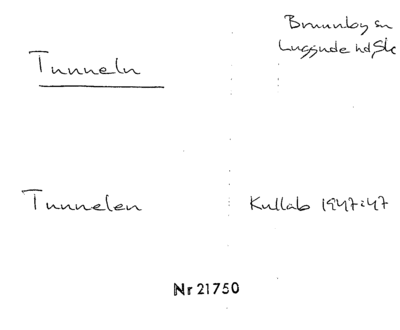 Brunnby sn
Tunneln
Luggude hd Sk
Tunnelen
Kullab 1947:47
Nr 21750